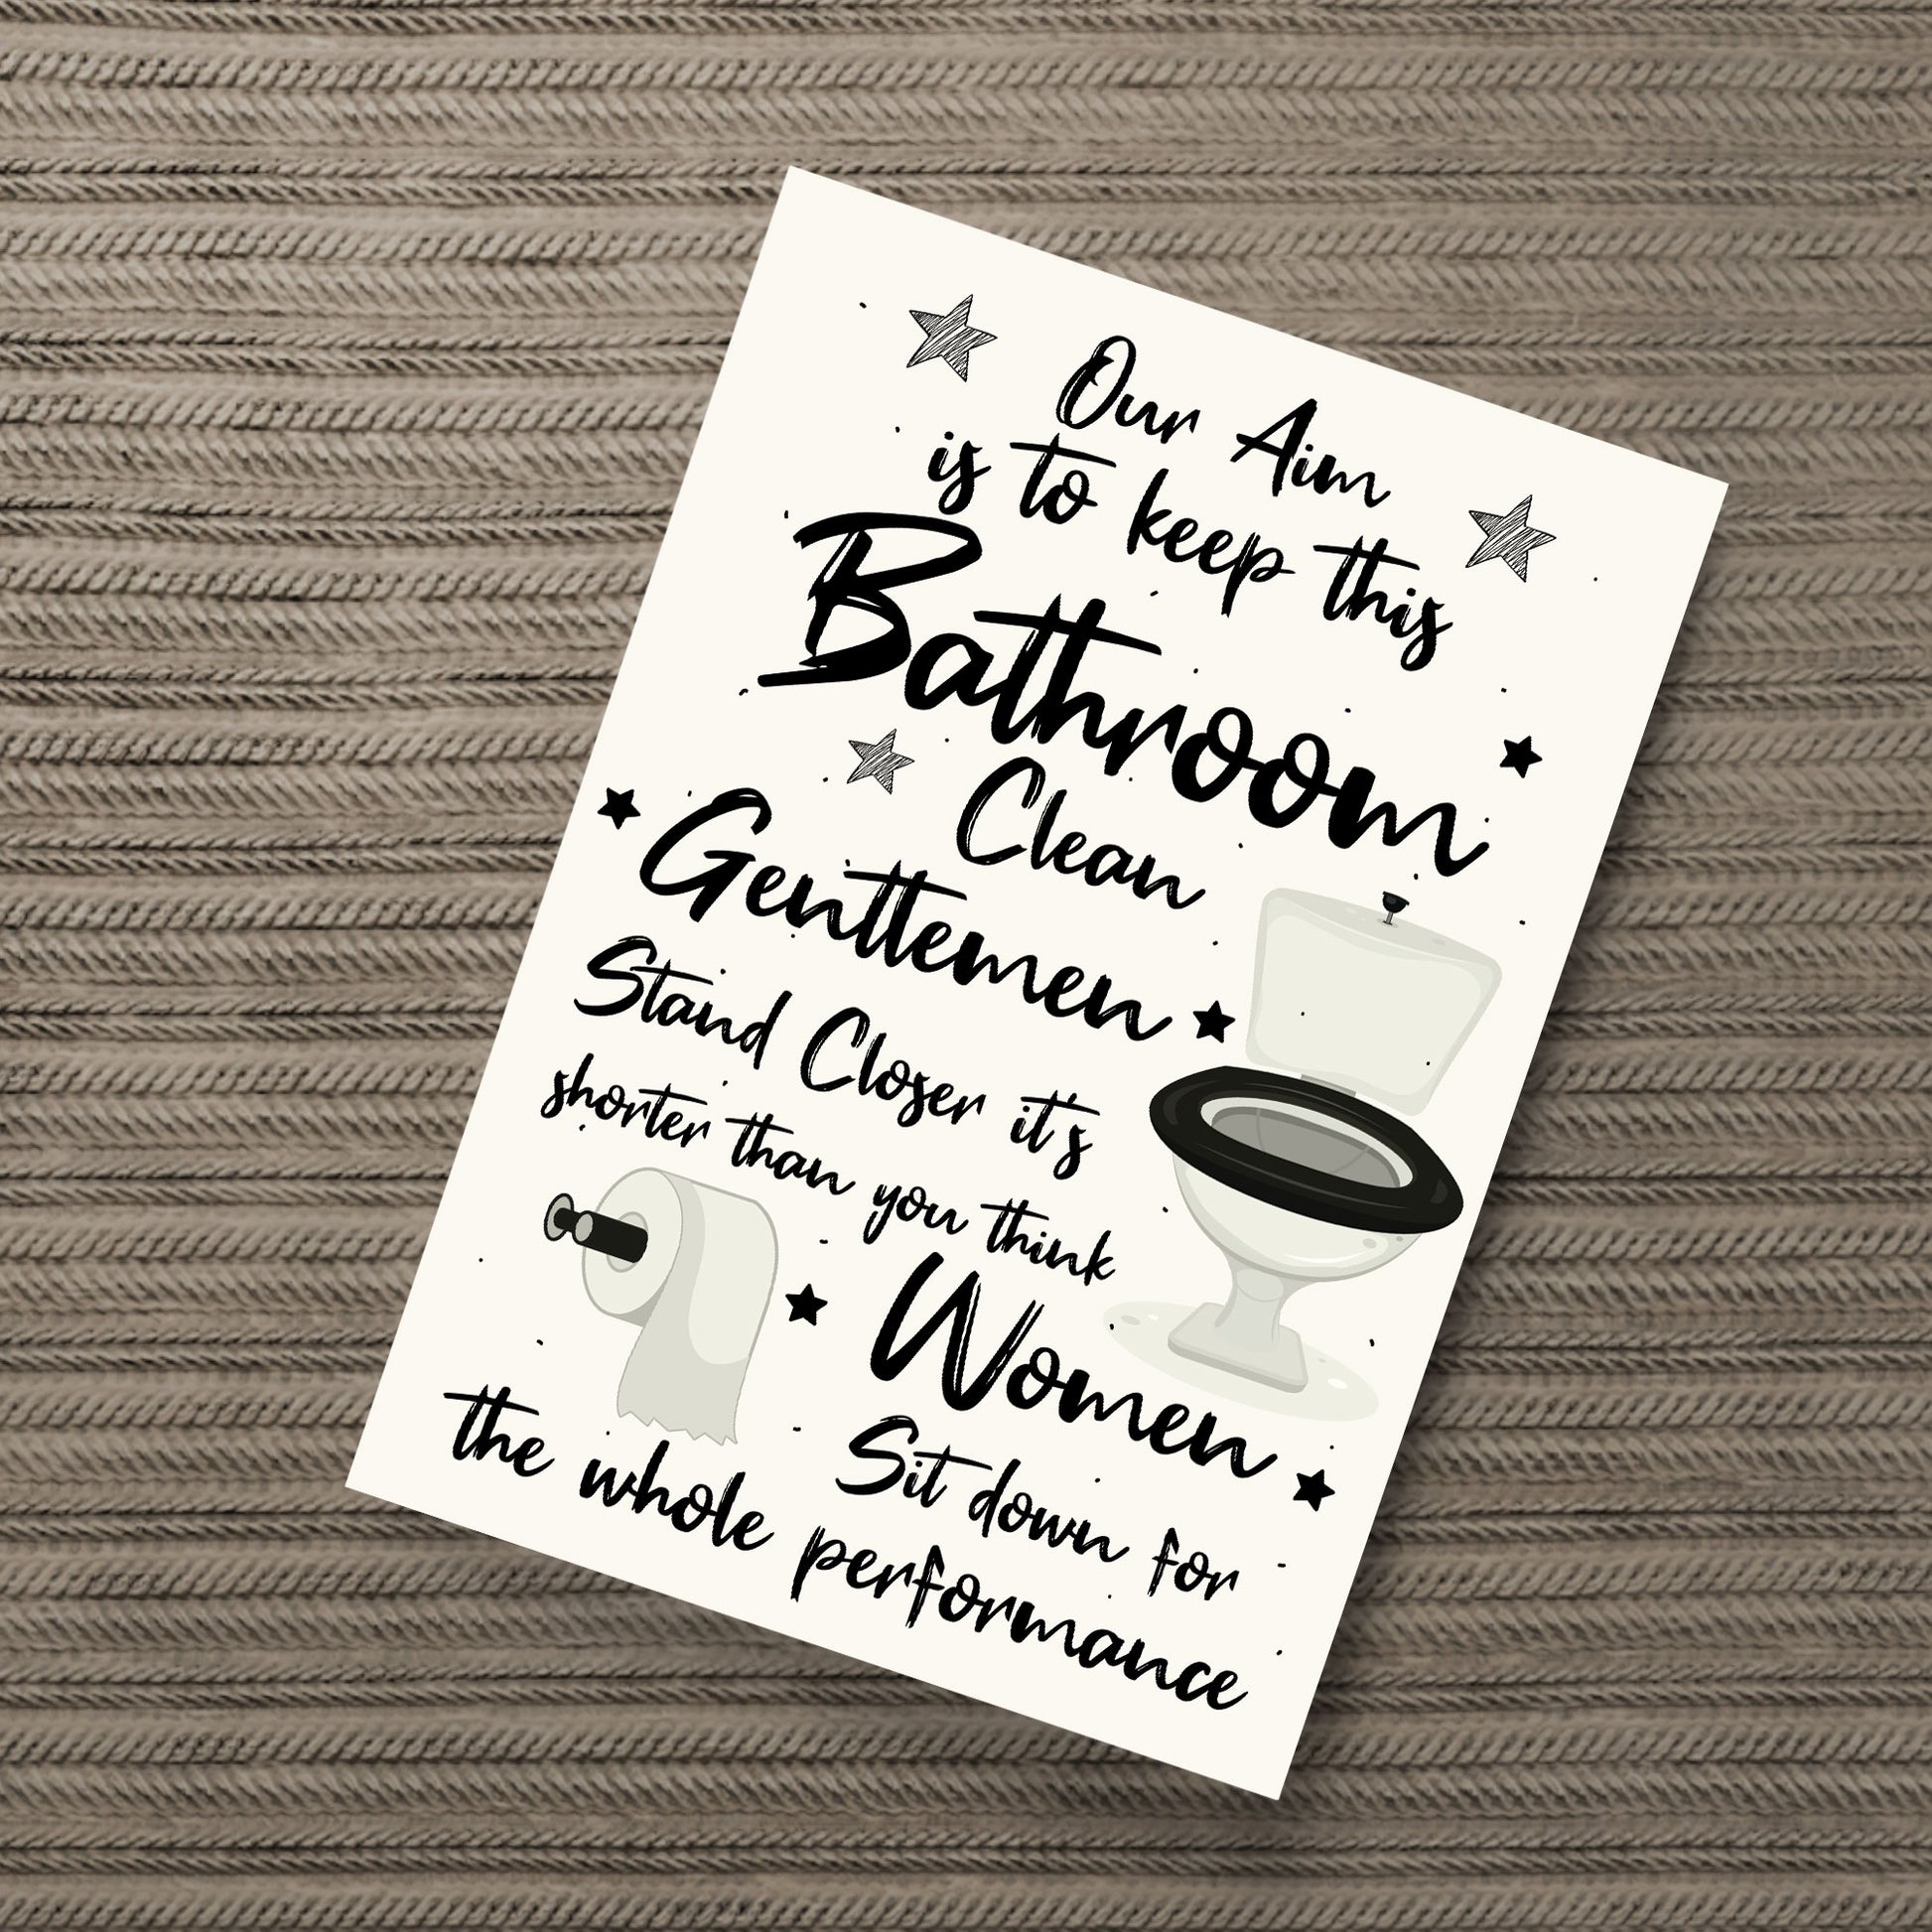 Our Aim
is to keep this
Bathroom
Clean
Genttemen
Stand Closer it's
shorter than you think
Women
Sit down for
the whole performance